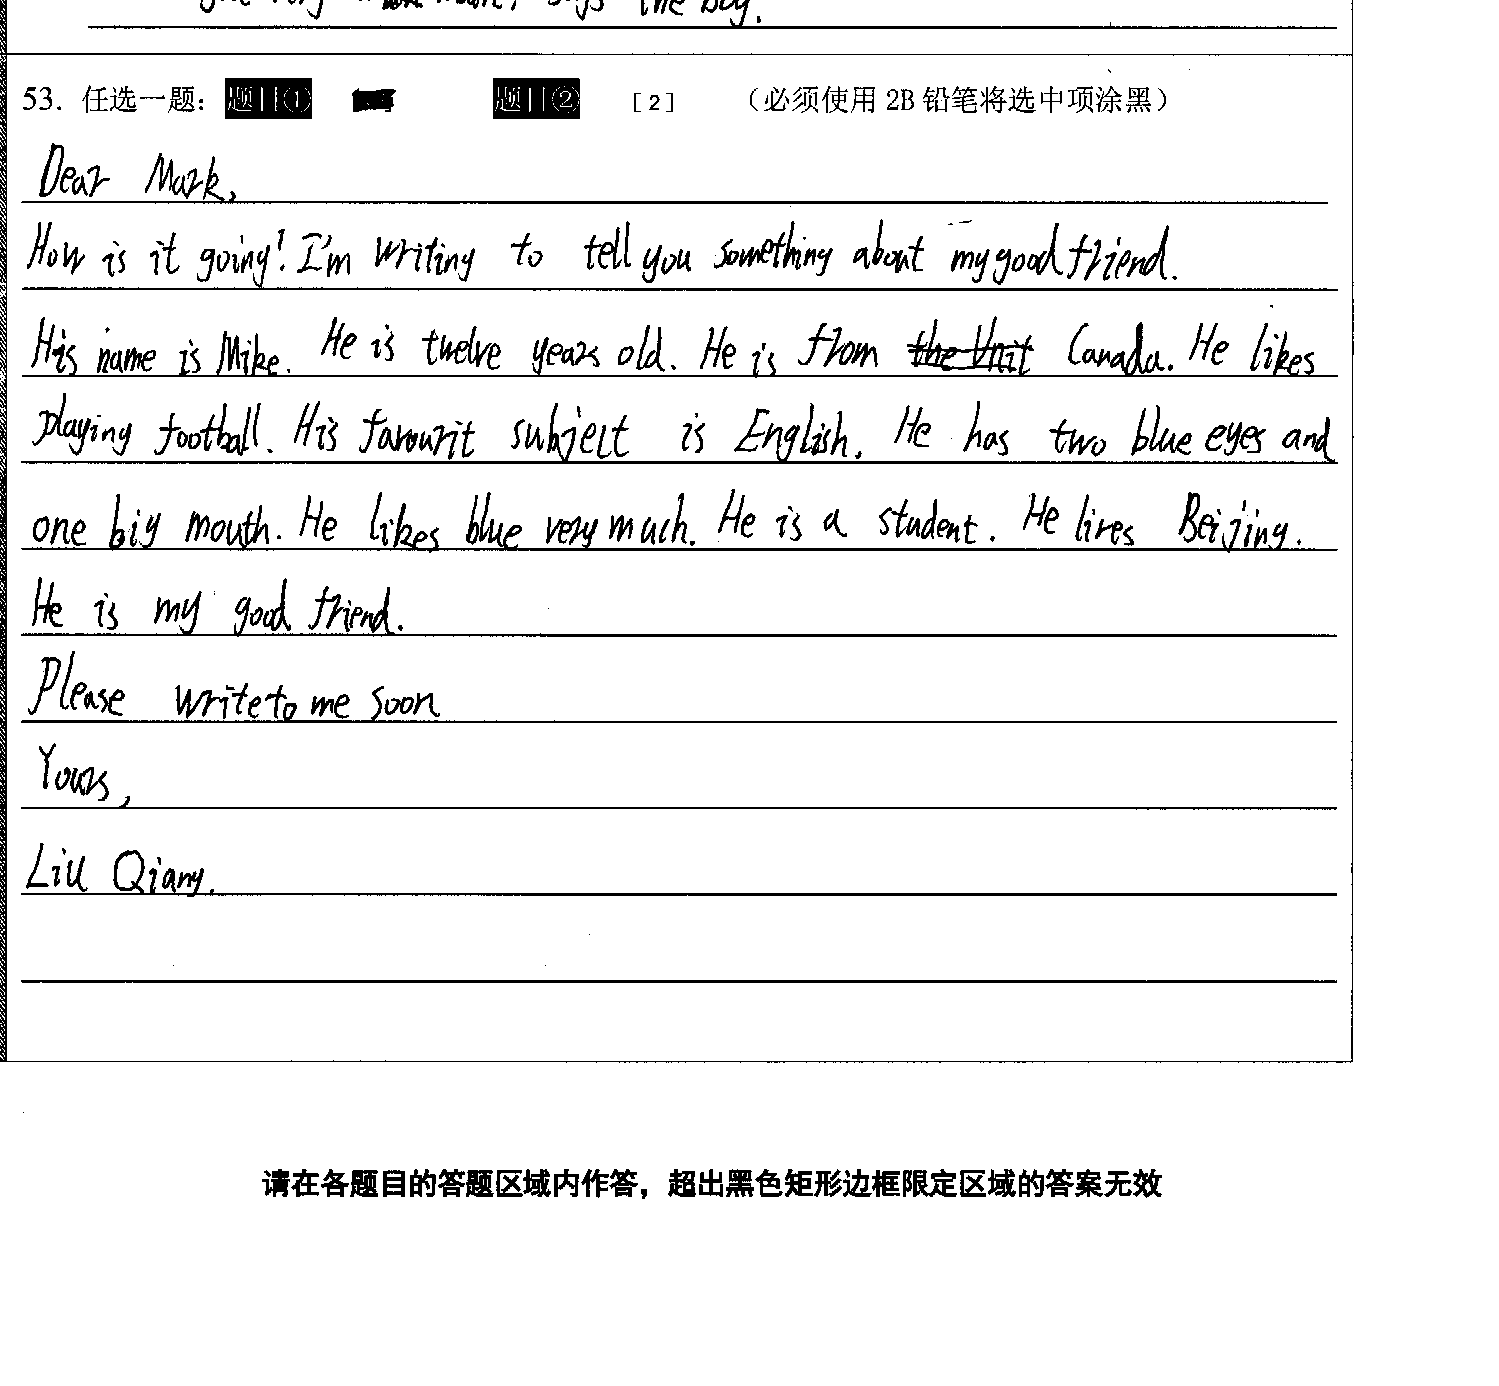 says the boy.
53. 任选一题： 题目① 题目② [2] （必须使用 2B 铅笔将选中项涂黑）
Dear Mark,
How is it going! I'm writing to tell you something about my good friend.
His name is Mike. He is twelve years old. He is from the Unit Canada. He likes
playing football. His favourit subject is English. He has two blue eyes and
one big mouth. He likes blue very much. He is a student. He lives Beijing.
He is my good friend.
Please write to me soon
Yours,
Liu Qiang.
请在各题目的答题区域内作答，超出黑色矩形边框限定区域的答案无效